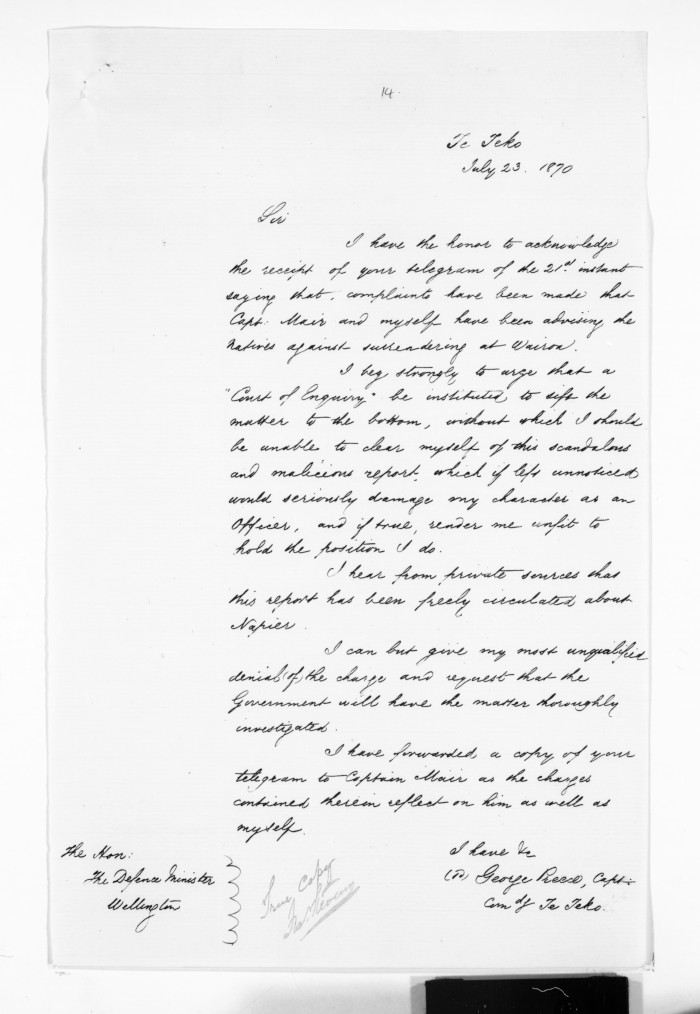 14.
Te Teko
July 23. 1870
Sir
I have the honor to acknowledge
the receipt of your telegram of the 21st. instant
saying that, complaints have been made that
Capt. Mair and myself have been advising the
Natives against surrendering at Wairoa.
I beg strongly to urge that a
"Court of Enquiry" be instituted to sift the
matter to the bottom, without which I should
be unable to clear myself of this scandalous
and malicious report, which if left unnoticed
would seriously damage my character as an
Officer, and if true, render me unfit to
hold the position I do.
I hear from private sources that
this report has been freely circulated about
Napier.
I can but give my most unqualified
denial (of) the charge and request that the
Government will have the matter thoroughly
investigated.
I have forwarded a copy of your
telegram to Captain Mair as the charges
contained therein reflect on him as well as
myself.
I have &c
George Preece, Capt:
Comdg Te Teko.
The Hon:
The Defence Minister
Wellington
True Copy